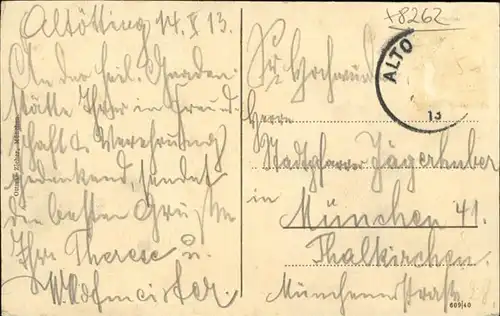 Altötting 14. X 13.
An der heil. Gnaden-
stätte Ihrer in Freund-
schaft & Verehrung
gedenkend, sendet
die besten Grüsse
Ihre Therese u.
+8262
ALTÖ
13
Sr. Hochwürden
Herrn
Stadtpfarrer Jägerhuber
in
München 41.
Thalkirchen.
Münchenerstraße
609/40